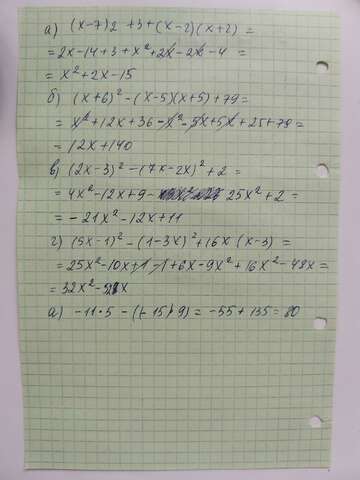 а) (x-7)2 +3+(x-2)(x+2) =
= 2x-14+3+x²+2x-2x-4 =
= x²+2x-15
б) (x+6)²-(x-5)(x+5)+79=
= x²+12x+36-x²-5x+5x+25+79=
= 12x+140
в) (2x-3)²-(7x-2x)²+2 =
= 4x²-12x+9- 25x²+2 =
= -21x²-12x+11
г) (5x-1)²-(1-3x)²+16x (x-3) =
= 25x²-10x+1-1+6x-9x²+16x²-48x=
= 32x²-52x
а) -11·5 -(-15)·9) = -55+135=80